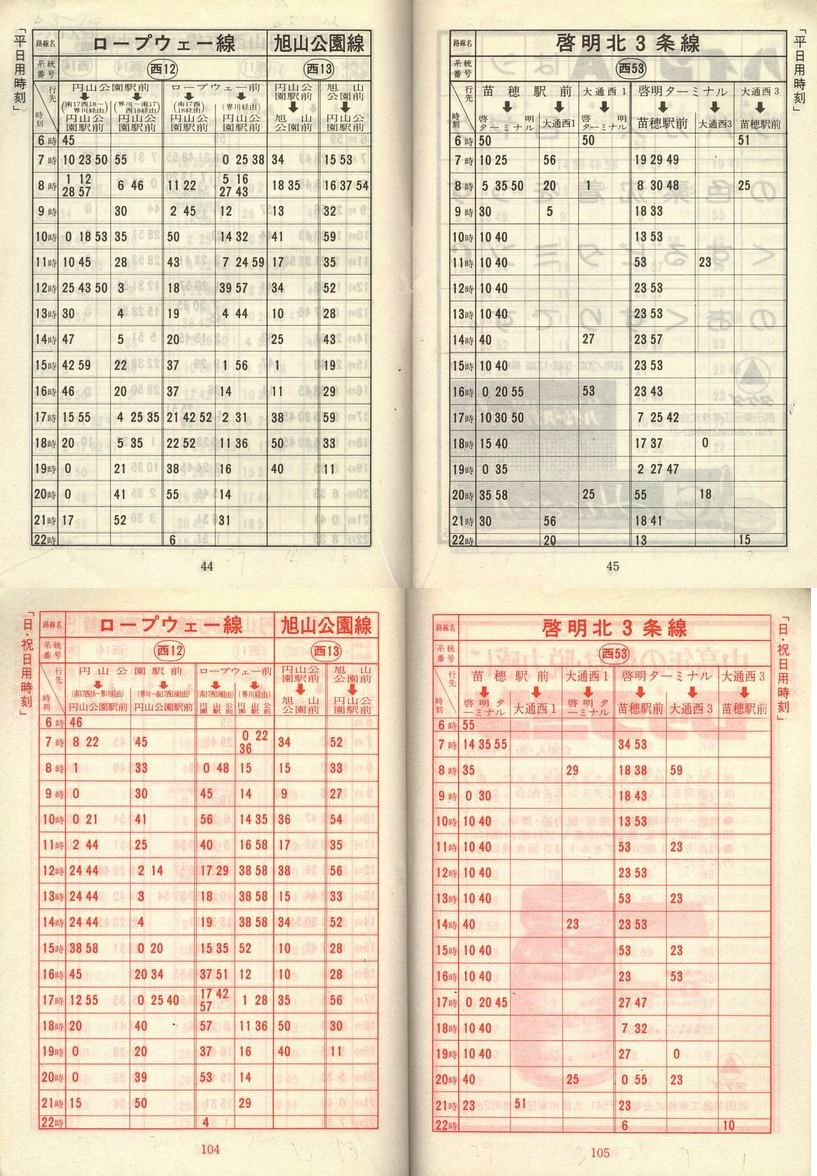 「平日用時刻」
路線名 ロープウェー線 旭山公園線
系統番号 西12 西13
行先 時刻
円山公園駅前 ロープウェー前 円山公園駅前 旭山公園前
(南17西16〜界川経由) (界川〜南17西18経由) (南17西18経由) (界川経由)
円山公園駅前 円山公園駅前 円山公園駅前 円山公園駅前 旭山公園前 円山公園駅前
6時 45
7時 10 23 50 55 0 25 38 34 15 53
8時 1 12 28 57 6 46 11 22 5 16 27 43 18 35 16 37 54
9時 30 2 45 12 13 32
10時 0 18 53 35 50 14 32 41 59
11時 10 45 28 43 7 24 59 17 35
12時 25 43 50 3 18 39 57 34 52
13時 30 4 19 4 44 10 28
14時 47 5 20 25 43
15時 42 59 22 37 1 56 1 19
16時 46 20 37 14 11 29
17時 15 55 4 25 35 21 42 52 2 31 38 59
18時 20 5 35 22 52 11 36 50 33
19時 0 21 38 16 40 11
20時 0 41 55 14
21時 17 52 31
22時 6
44
「平日用時刻」
路線名 啓明北3条線
系統番号 西53
行先 時刻
苗穂駅前 大通西1 啓明ターミナル 大通西3
啓明ターミナル 大通西1 啓明ターミナル 苗穂駅前 大通西3 苗穂駅前
6時 50 50 51
7時 10 25 56 19 29 49
8時 5 35 50 20 1 8 30 48 25
9時 30 5 18 33
10時 10 40 13 53
11時 10 40 53 23
12時 10 40 23 53
13時 10 40 23 53
14時 40 27 23 57
15時 10 40 23 53
16時 0 20 55 53 23 43
17時 10 30 50 7 25 42
18時 15 40 17 37 0
19時 0 35 2 27 47
20時 35 58 25 55 18
21時 30 56 18 41
22時 20 13 15
45
「日・祝日用時刻」
路線名 ロープウェー線 旭山公園線
系統番号 西12 西13
行先 時刻
円山公園駅前 ロープウェー前 円山公園駅前 旭山公園前
円山公園駅前 円山公園駅前 円山公園駅前 円山公園駅前 旭山公園前 円山公園駅前
6時 46
7時 8 22 45 0 22 36 34 52
8時 1 33 0 48 15 15 33
9時 0 30 45 14 9 27
10時 0 21 41 56 14 35 36 54
11時 2 44 25 40 16 58 17 35
12時 24 44 2 14 17 29 38 58 38 56
13時 24 44 3 18 38 58 15 33
14時 24 44 4 19 38 58 34 52
15時 38 58 0 20 15 35 52 10 28
16時 45 20 34 37 51 12 10 28
17時 12 55 0 25 40 17 42 57 1 28 35 56
18時 20 40 57 11 36 50 30
19時 0 20 37 16 40 11
20時 0 39 53 14
21時 15 50 29
22時 4
104
「日・祝日用時刻」
路線名 啓明北3条線
系統番号 西53
行先 時刻
苗穂駅前 大通西1 啓明ターミナル 大通西3
啓明ターミナル 大通西1 啓明ターミナル 苗穂駅前 大通西3 苗穂駅前
6時 55
7時 14 35 55 34 53
8時 35 29 18 38 59
9時 0 30 18 43
10時 10 40 13 53
11時 10 40 53 23
12時 10 40 23 53
13時 10 40 53 23
14時 40 23 23 53
15時 10 40 53 23
16時 10 40 23 53
17時 0 20 45 27 47
18時 10 40 7 32
19時 10 40 27 0
20時 40 25 0 55 23
21時 23 51 23
22時 6 10
105